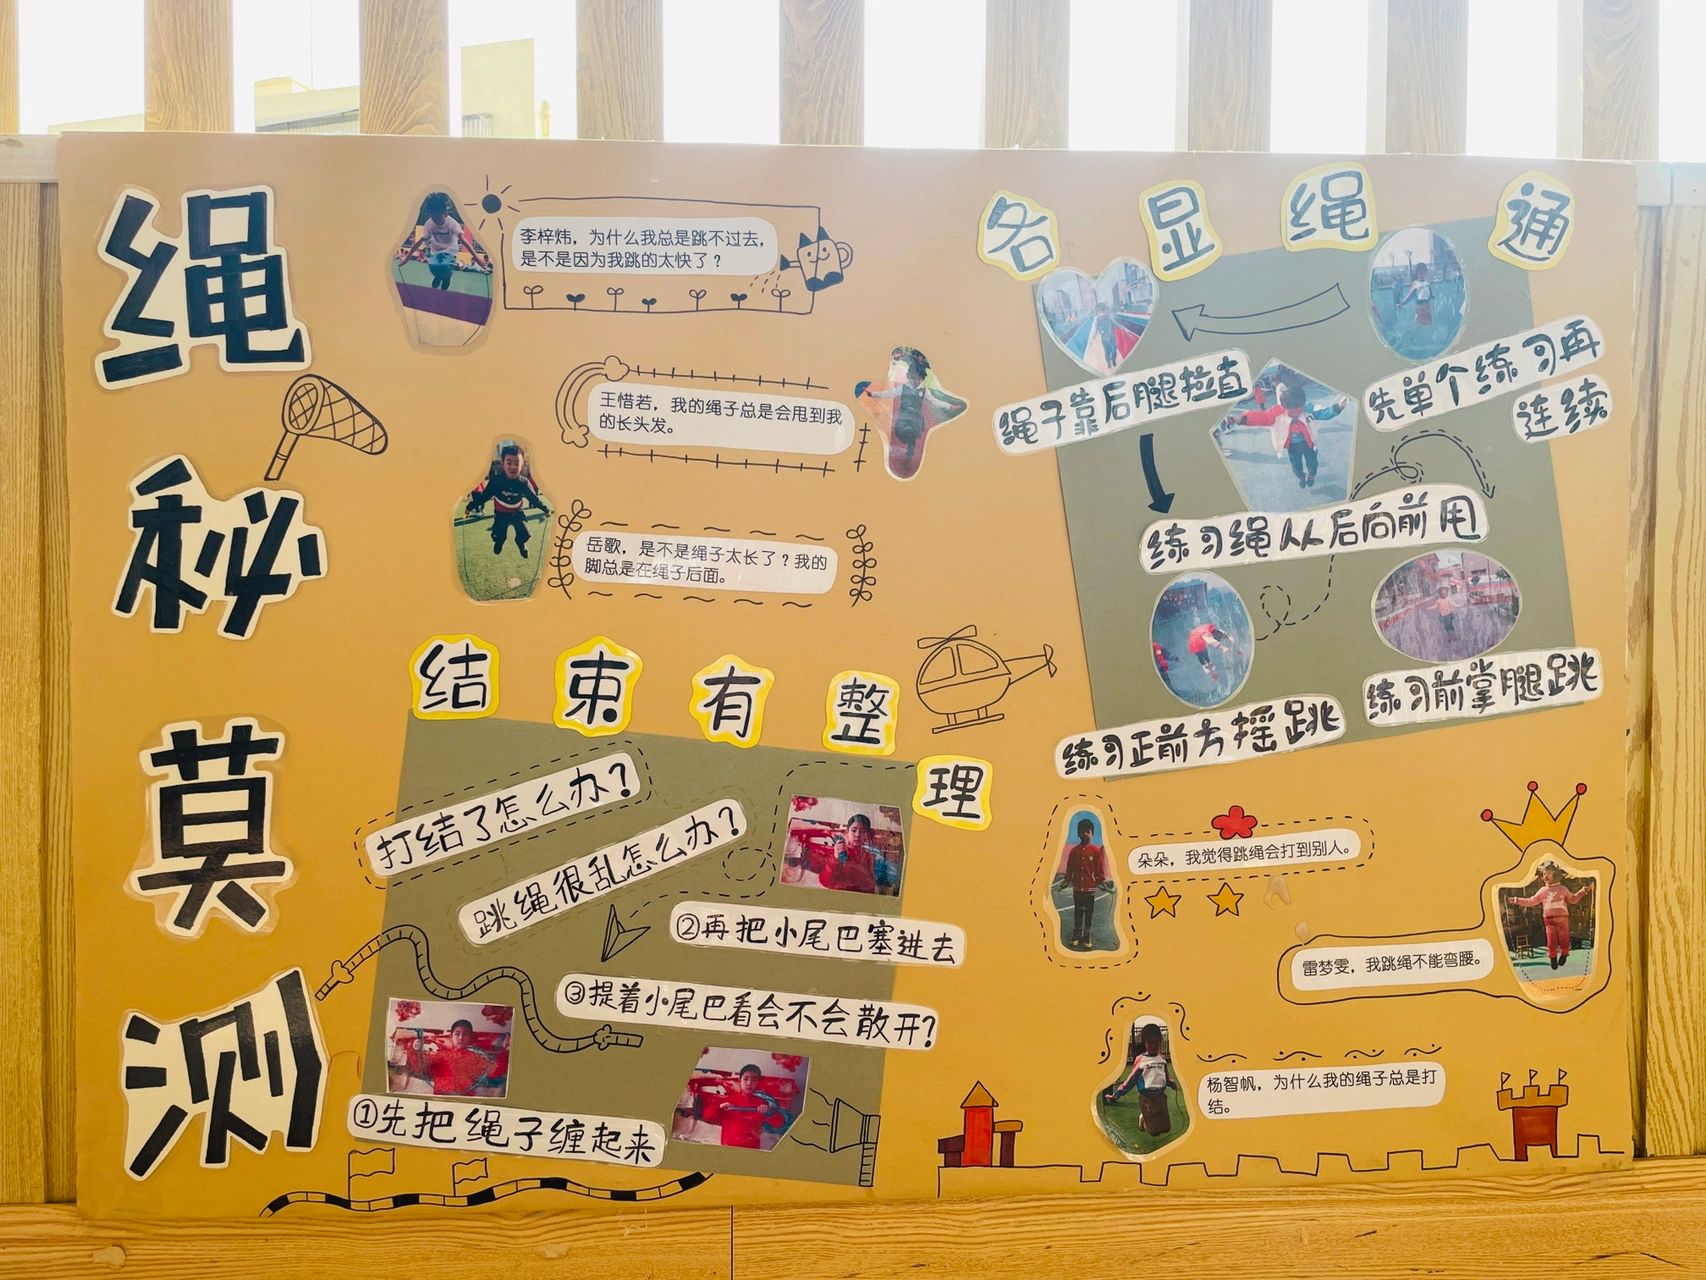 绳秘莫测
李梓炜，为什么我总是跳不过去，
是不是因为我跳的太快了？
王惜若，我的绳子总是会甩到我
的长头发。
岳歌，是不是绳子太长了？我的
脚总是在绳子后面。
各显绳通
先单个练习再
连续
绳子靠后腿拉直
练习绳从后向前甩
练习正前方摇跳
练习前掌腿跳
结束有整理
打结了怎么办？
跳绳很乱怎么办？
①先把绳子缠起来
②再把小尾巴塞进去
③提着小尾巴看会不会散开？
朵朵，我觉得跳绳会打到别人。
雷梦雯，我跳绳不能弯腰。
杨智帆，为什么我的绳子总是打
结。